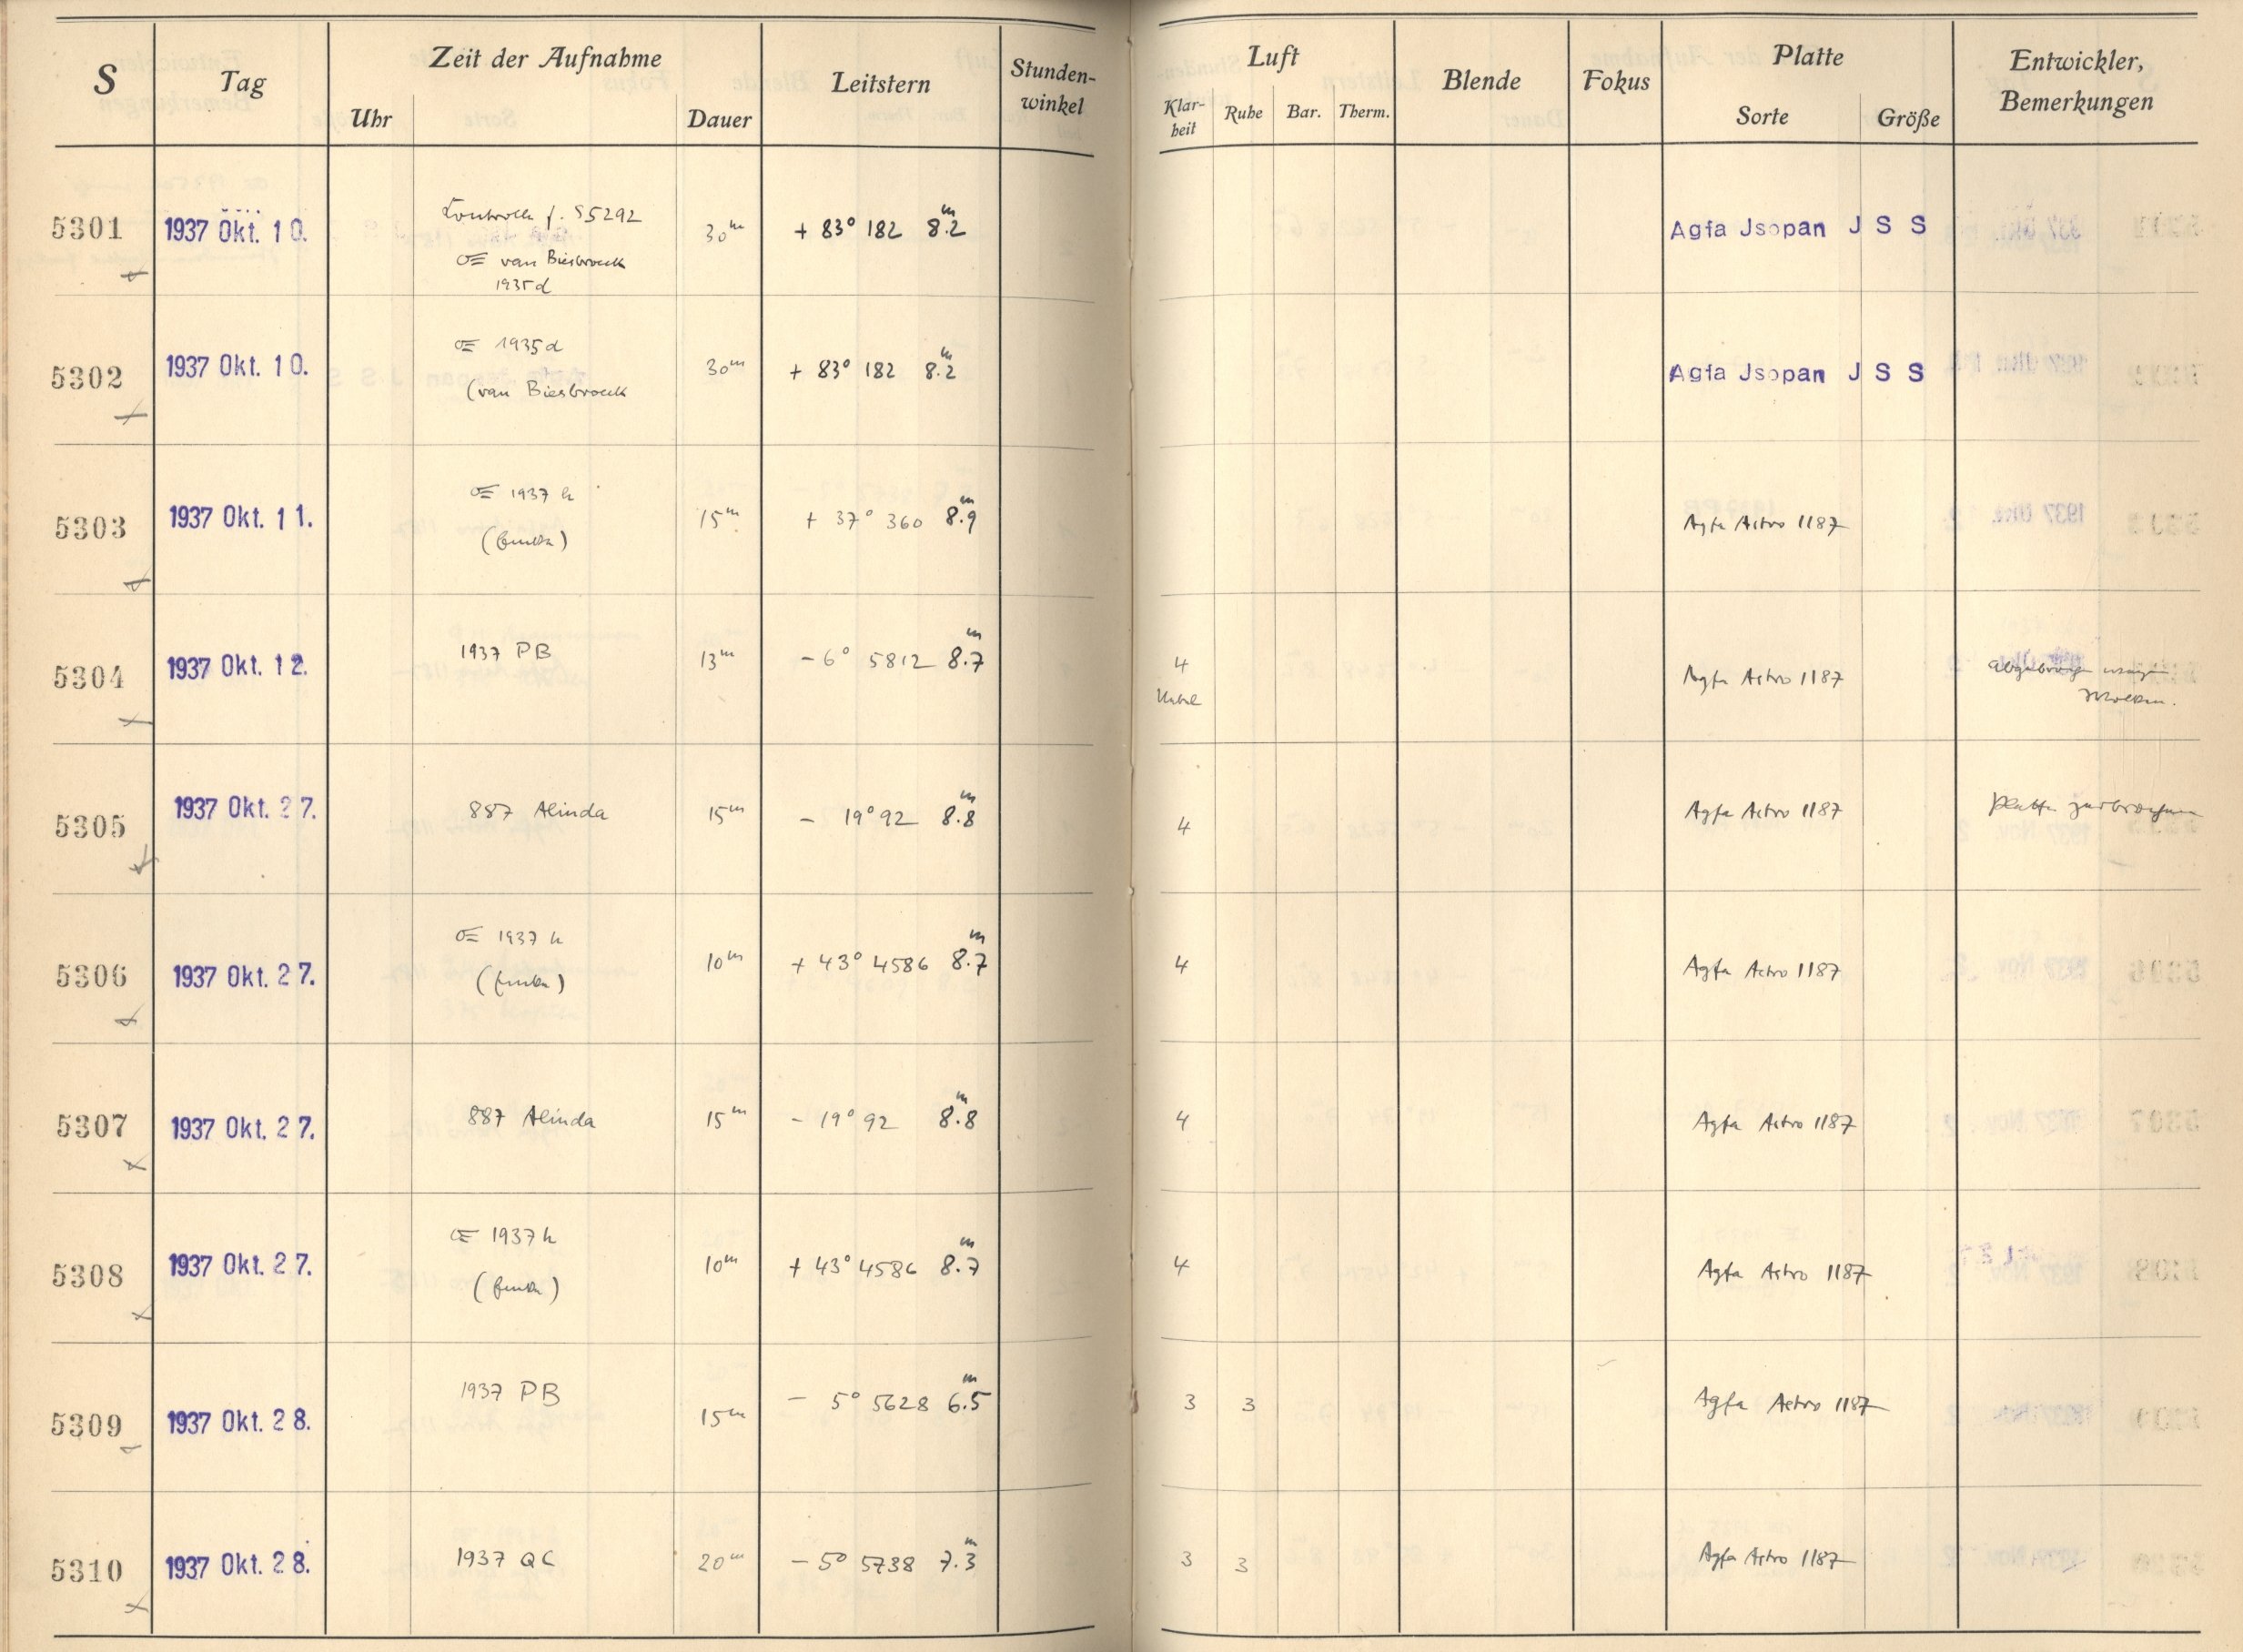 S Tag Zeit der Aufnahme Leitstern Stunden-winkel Luft Blende Fokus Platte Entwickler, Bemerkungen
Uhr Dauer Klar-heit Ruhe Bar. Therm. Sorte Größe
5301 1937 Okt. 10. Kontrolle f. S5292 30m + 83° 182 8.2m Agfa Jsopan J S S
van Biesbroeck
1935d
5302 1937 Okt. 10. 1935d 30m + 83° 182 8.2m Agfa Jsopan J S S
(van Biesbroeck
5303 1937 Okt. 11. 1937 h 15m + 37° 360 8.9m Agfa Astro 1187
(Finsler)
5304 1937 Okt. 12. 1937 PB 13m - 6° 5812 8.7m 4 Agfa Astro 1187 abgebrochen wegen
Nebel Wolken.
5305 1937 Okt. 27. 887 Alinda 15m - 19° 92 8.8m 4 Agfa Astro 1187 Platte zerbrochen
5306 1937 Okt. 27. 1937 h 10m + 43° 4586 8.7m 4 Agfa Astro 1187
(Finsler)
5307 1937 Okt. 27. 887 Alinda 15m - 19° 92 8.8m 4 Agfa Astro 1187
5308 1937 Okt. 27. 1937 h 10m + 43° 4586 8.7m 4 Agfa Astro 1187
(Finsler)
5309 1937 Okt. 28. 1937 PB 15m - 5° 5628 6.5m 3 3 Agfa Astro 1187
5310 1937 Okt. 28. 1937 QC 20m - 5° 5738 7.3m 3 3 Agfa Astro 1187